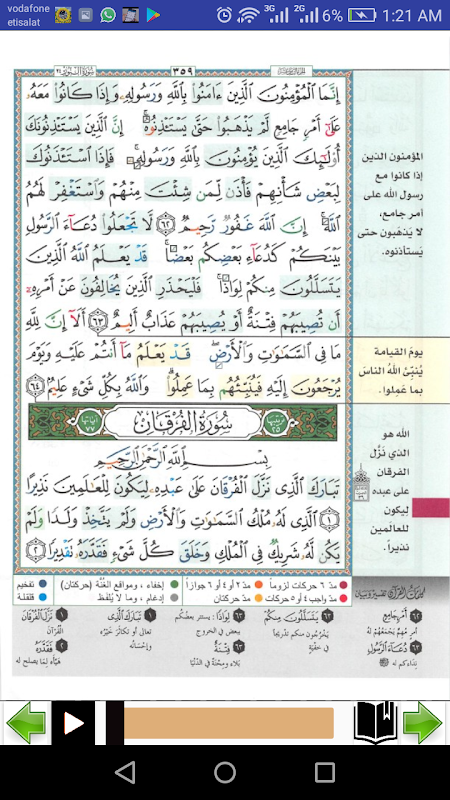 vodafone
etisalat
3G
2G
6%
1:21 AM
٣٥٩
إِنَّمَا الْمُؤْمِنُونَ الَّذِينَ ءَامَنُوا بِاللَّهِ وَرَسُولِهِ وَإِذَا كَانُوا مَعَهُ
عَلَىٰ أَمْرٍ جَامِعٍ لَّمْ يَذْهَبُوا حَتَّىٰ يَسْتَـْٔذِنُوهُ ۚ إِنَّ الَّذِينَ يَسْتَـْٔذِنُونَكَ
أُولَٰئِكَ الَّذِينَ يُؤْمِنُونَ بِاللَّهِ وَرَسُولِهِ ۚ فَإِذَا اسْتَـْٔذَنُوكَ
لِبَعْضِ شَأْنِهِمْ فَأْذَن لِّمَن شِئْتَ مِنْهُمْ وَاسْتَغْفِرْ لَهُمُ
اللَّهَ ۚ إِنَّ اللَّهَ غَفُورٌ رَّحِيمٌ ٦٢ لَّا تَجْعَلُوا دُعَاءَ الرَّسُولِ
بَيْنَكُمْ كَدُعَاءِ بَعْضِكُم بَعْضًا ۚ قَدْ يَعْلَمُ اللَّهُ الَّذِينَ
يَتَسَلَّلُونَ مِنكُمْ لِوَاذًا ۚ فَلْيَحْذَرِ الَّذِينَ يُخَالِفُونَ عَنْ أَمْرِهِ
أَن تُصِيبَهُمْ فِتْنَةٌ أَوْ يُصِيبَهُمْ عَذَابٌ أَلِيمٌ ٦٣ أَلَا إِنَّ لِلَّهِ
مَا فِي السَّمَٰوَٰتِ وَالْأَرْضِ ۖ قَدْ يَعْلَمُ مَا أَنتُمْ عَلَيْهِ وَيَوْمَ
يُرْجَعُونَ إِلَيْهِ فَيُنَبِّئُهُم بِمَا عَمِلُوا ۗ وَاللَّهُ بِكُلِّ شَيْءٍ عَلِيمٌ ٦٤
سُورَةُ الْفُرْقَانِ
بِسْمِ اللَّهِ الرَّحْمَٰنِ الرَّحِيمِ
تَبَارَكَ الَّذِي نَزَّلَ الْفُرْقَانَ عَلَىٰ عَبْدِهِ لِيَكُونَ لِلْعَٰلَمِينَ نَذِيرًا
١ الَّذِي لَهُ مُلْكُ السَّمَٰوَٰتِ وَالْأَرْضِ وَلَمْ يَتَّخِذْ وَلَدًا وَلَمْ
يَكُن لَّهُ شَرِيكٌ فِي الْمُلْكِ وَخَلَقَ كُلَّ شَيْءٍ فَقَدَّرَهُ تَقْدِيرًا ٢
المؤمنون الذين
إذا كانوا مع
رسول الله على
أمر جامع،
لا يَذهَبون حتى
يَستأذنوه.
يومَ القيامة
يُنبِّئ اللهُ الناسَ
بما عَمِلوا.
الله هو
الذي نَزَّل
الفرقان
على عبده
ليكون
للعالمين
نذيراً.
مدّ ٦ حركات لزوماً
مدّ ٢ أو ٤ أو ٦ جوازاً
إخفاء، ومواقع الغُنَّة (حركتان)
تفخيم
مدّ واجب ٤ أو ٥ حركات
مدّ حركتان
إدغام، وما لا يُلفَظ
قلقلة
٦٢ أَمْرٍ جَامِعٍ
أمرٍ مُهمٍّ يَجْمَعُهُمْ لَهُ
٦٣ دُعَاءَ الرَّسُولِ
نداءكم له ﷺ
٦٣ يَتَسَلَّلُونَ مِنكُمْ
يَخْرُجُونَ منكم تدريجاً
في خِفْيَةٍ
٦٣ لِوَاذًا : يستتر بعضُكم
ببعض في الخروج
٦٣ فِتْنَةٌ
بَلاء ومِحْنَةٌ في الدُّنْيَا
١ تَبَارَكَ الَّذِي
تعالى أو تكاثَرَ خَيْرُه
وإحْسَانُه
١ نَزَّلَ الْفُرْقَانَ
القُرْآنَ
٢ فَقَدَّرَهُ
هَيَّأه لِمَا يصلُح له